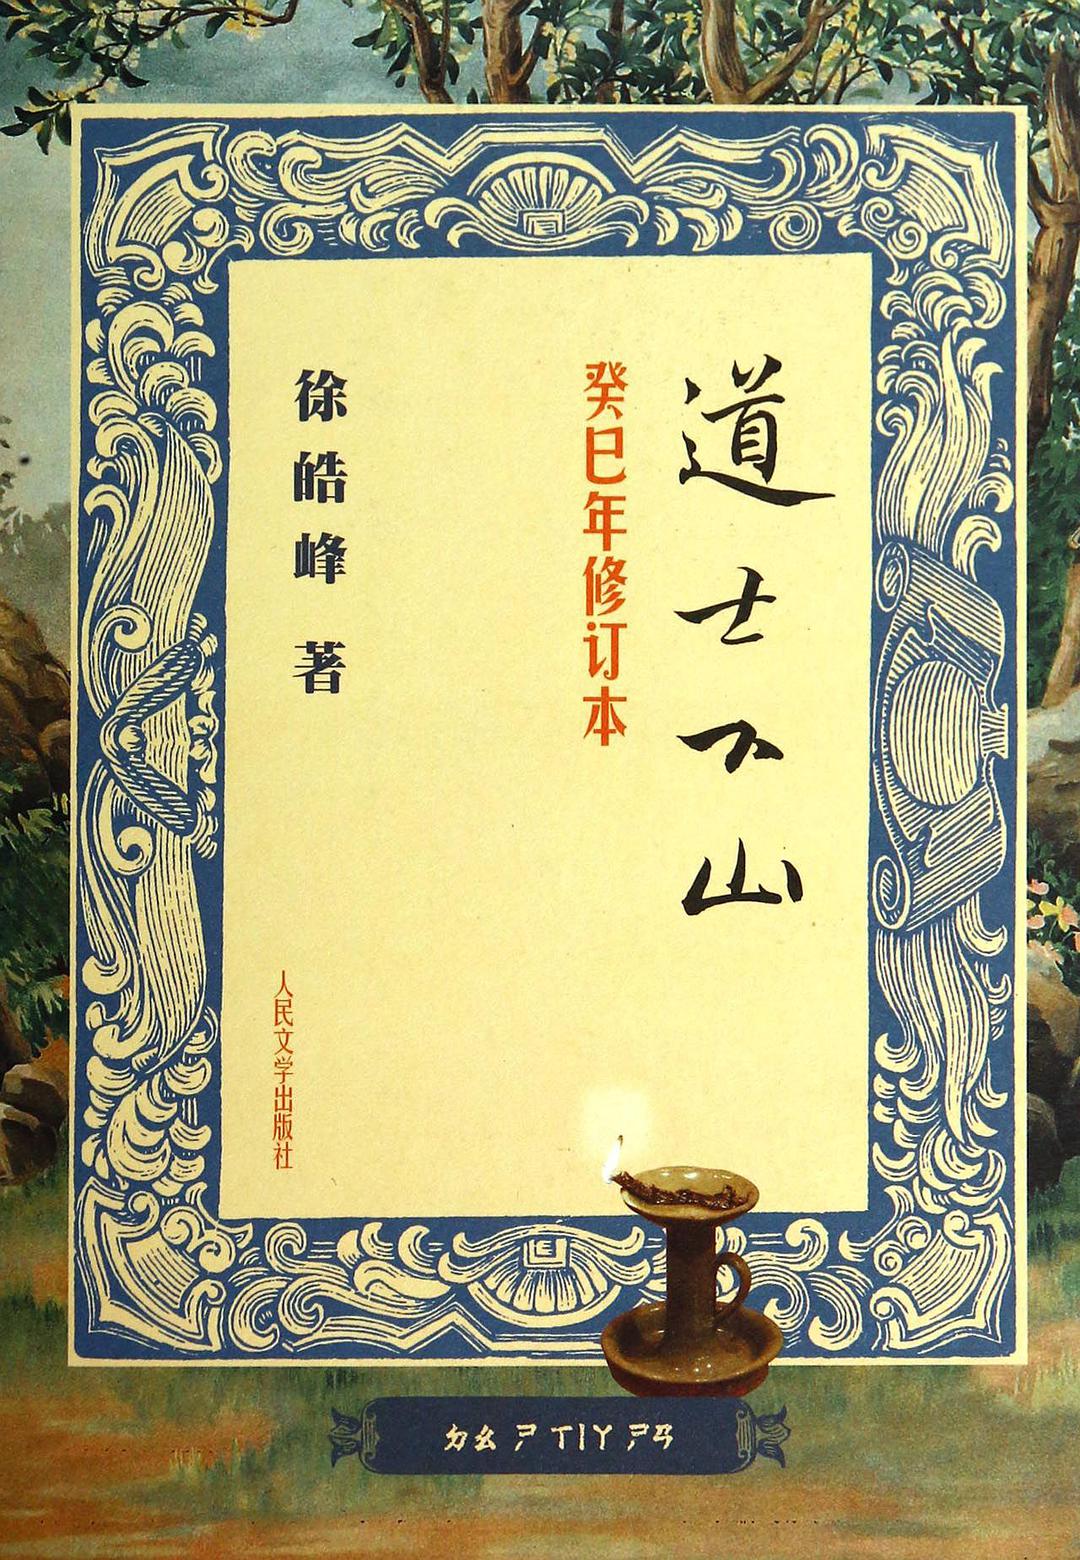 道士下山
癸巳年修订本
徐皓峰 著
人民文学出版社
ㄉㄠ ㄕ ㄒㄧㄚ ㄕㄢ